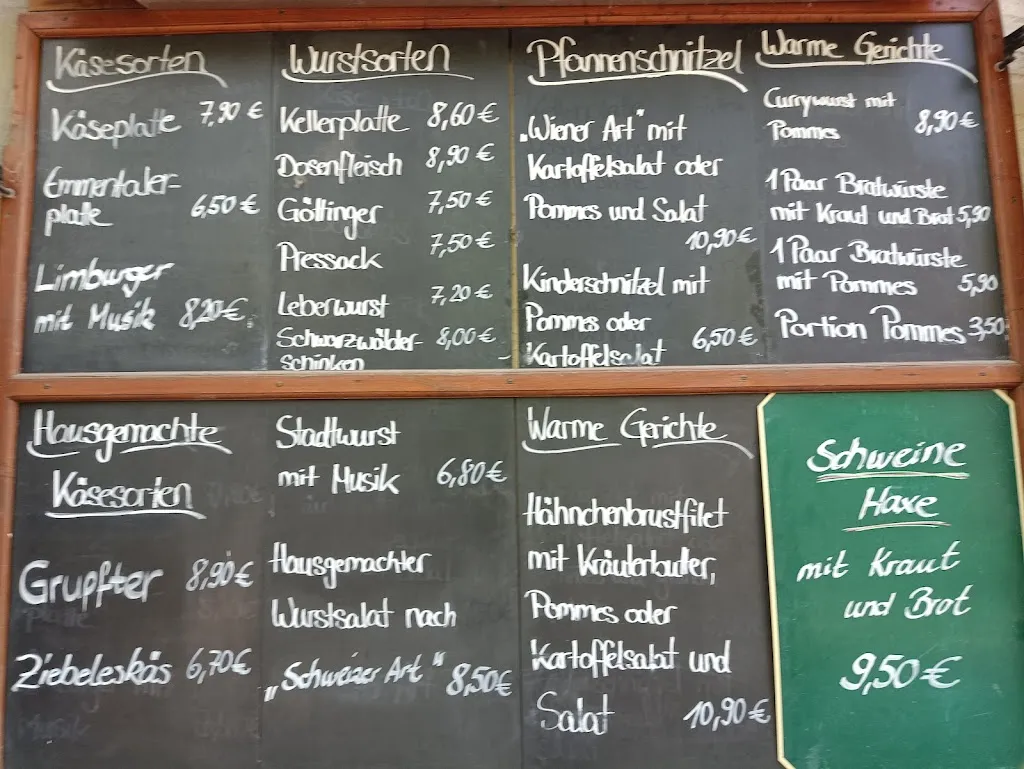 Käsesorten
Käseplatte 7,90 €
Emmentaler-
platte 6,50 €
Limburger
mit Musik 8,20 €
Wurstsorten
Kellerplatte 8,60 €
Dosenfleisch 8,90 €
Göttinger 7,50 €
Pressack 7,50 €
Leberwurst 7,20 €
Schwarzwälder- 8,00 €
schinken
Pfannenschnitzel
„Wiener Art" mit
Kartoffelsalat oder
Pommes und Salat
10,90 €
Kinderschnitzel mit
Pommes oder 6,50 €
Kartoffelsalat
Warme Gerichte
Currywurst mit
Pommes 8,90 €
1 Paar Bratwürste
mit Kraut und Brot 5,90
1 Paar Bratwürste
mit Pommes 5,90
Portion Pommes 3,50
Hausgemachte
Käsesorten
Grupfter 8,90 €
Ziebeleskäs 6,70 €
Stadtwurst
mit Musik 6,80 €
Hausgemachter
Wurstsalat nach
„Schweizer Art" 8,50 €
Warme Gerichte
Hähnchenbrustfilet
mit Kräuterbutter,
Pommes oder
Kartoffelsalat und
Salat 10,90 €
Schweine
Haxe
mit Kraut
und Brot
9,50 €